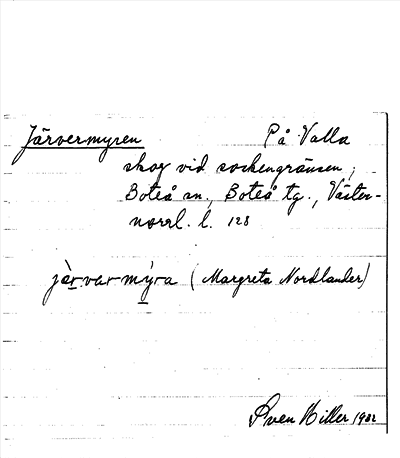 Järvermyren På Valla
skog vid sockengränsen,
Boteå sn., Boteå tg., Väster-
norrl. l. 128
jä̀r.var-mỳra (Margreta Nordlander)
Sven Hiller